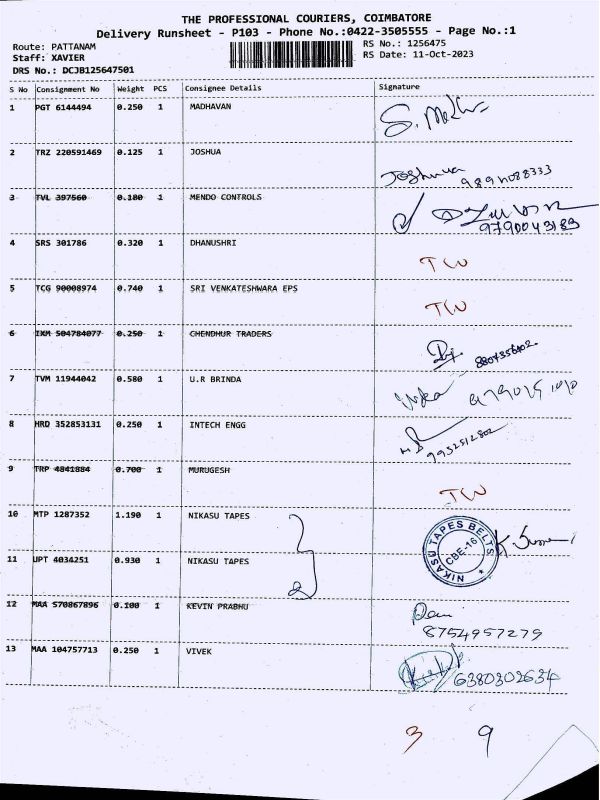 THE PROFESSIONAL COURIERS, COIMBATORE
Delivery Runsheet - P103 - Phone No.:0422-3505555 - Page No.:1
Route: PATTANAM
RS No.: 1256475
Staff: XAVIER
RS Date: 11-Oct-2023
DRS No.: DCJB125647501
S No Consignment No Weight PCS Consignee Details Signature
1 PGT 6144494 0.250 1 MADHAVAN
2 TRZ 220591469 0.125 1 JOSHUA Joshuva
3 TVL 397560 0.180 1 MENDO CONTROLS 9790043183
4 SRS 301786 0.320 1 DHANUSHRI
5 TCG 90008974 0.740 1 SRI VENKATESHWARA EPS
6 IXM 504784077 0.250 1 CHENDHUR TRADERS
7 TVM 11944042 0.580 1 U.R BRINDA
8 HRD 352853131 0.250 1 INTECH ENGG 9952512802
9 TRP 4841884 0.700 1 MURUGESH
10 MTP 1287352 1.190 1 NIKASU TAPES
NIKASU TAPES BELTS CBE-16
11 UPT 4034251 0.930 1 NIKASU TAPES
2
12 MAA 570867896 0.100 1 KEVIN PRABHU
8754957279
13 MAA 104757713 0.250 1 VIVEK 6380302634
3 9